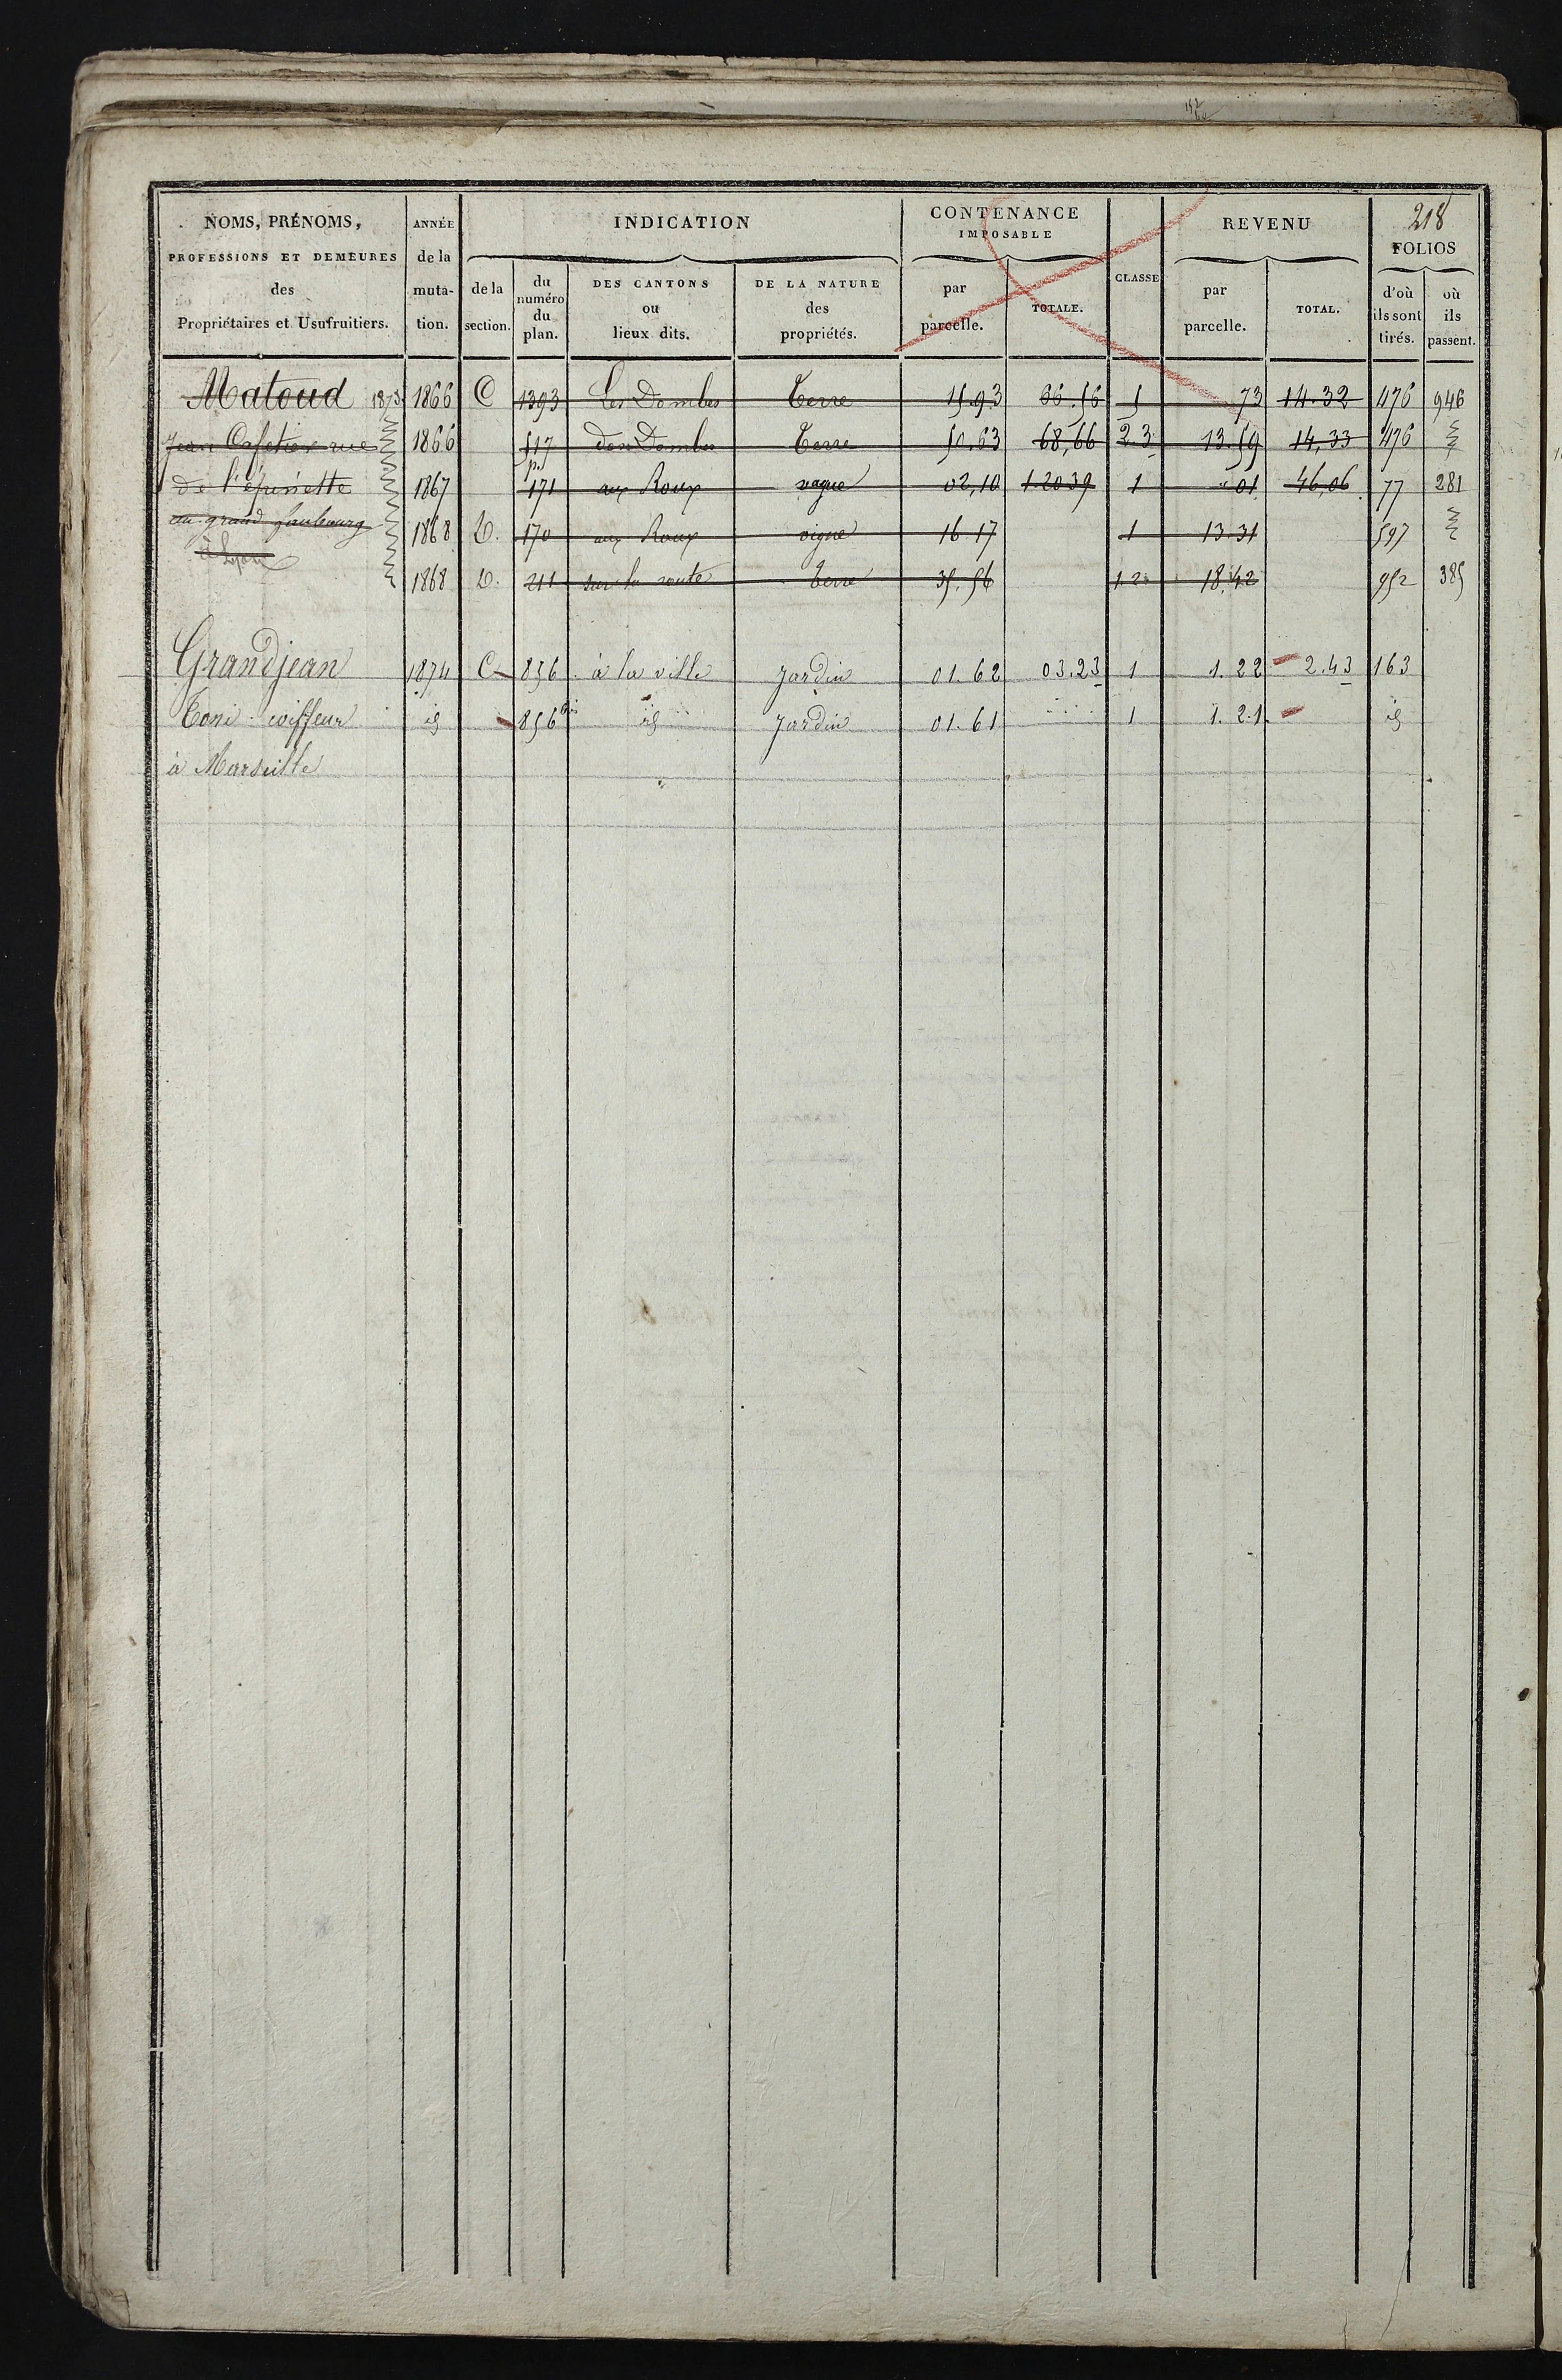 218
NOMS, PRÉNOMS, PROFESSIONS ET DEMEURES des Propriétaires et Usufruitiers.
ANNÉE de la muta- tion.
INDICATION
de la section.
du numéro du plan.
DES CANTONS ou lieux dits.
DE LA NATURE des propriétés.
CONTENANCE IMPOSABLE
par parcelle.
TOTALE.
CLASSE
REVENU
par parcelle.
TOTAL.
FOLIOS
d'où ils sont tirés.
où ils passent.
Matoud 1873 1866 C 1393 Les Dombes Terre 15.93 66.56 5 73 14.32 476 946
Jean Cafetier rue 1866 517 p. des Dombes Terre 50.63 68,66 2 3 13.59 14,33 476
de l'épinette 1867 171 aux Roux vague 02,10 1.20 39 1 " 01 46,06 77 281
au grand faubourg 1868 D. 170 aux Roux vigne 16 17 1 13.31 597
à Lyon
1868 D. 211 sur la route Terre 35.56 1 2 18.42 952 385
Grandjean 1874 C 856 à la ville Jardin 01.62 03.23 1 1.22 2.43 163
Toni coiffeur id 856 bis id Jardin 01.61 1 1.21 id
à Marseille